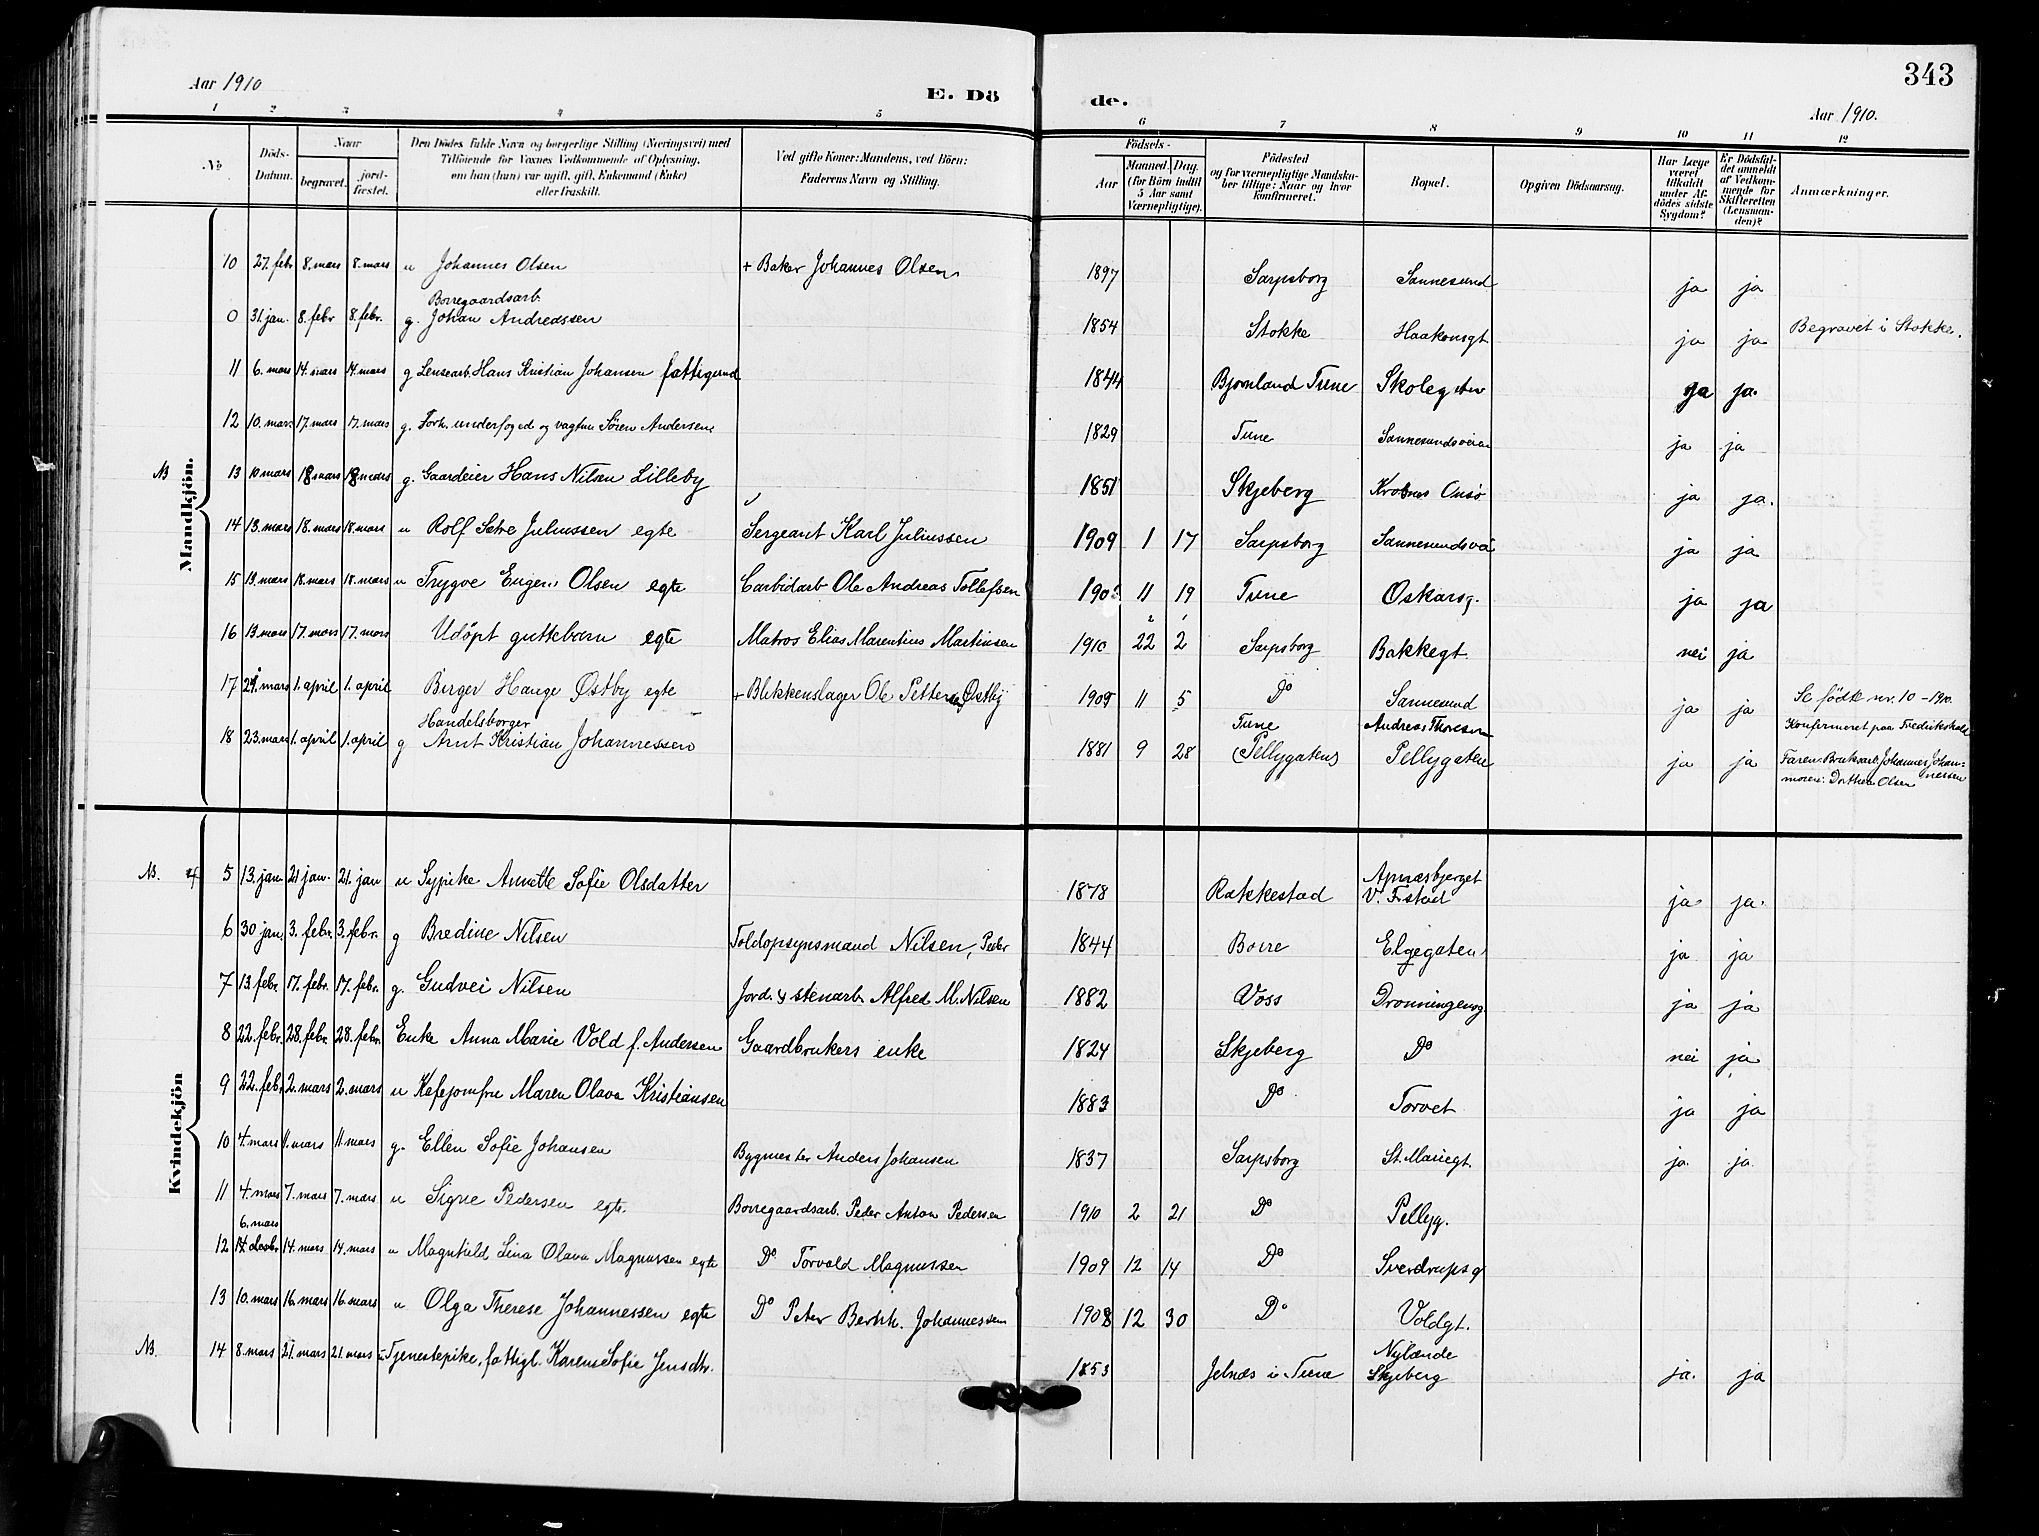 343
Aar 1910
E. Dö
de.
Aar 1910.
1 2 3 4 5 6 7 8 9 10 11 12
No.
Döds-Datum.
Naar
begravet.
jord-fæstet.
Den Dödes fulde Navn og borgerlige Stilling (Næringsvei) med
Tilföiende for Voxnes Vedkommende af Oplysning,
om han (hun) var ugift, gift, Enkemand (Enke)
eller fraskilt.
Ved gifte Koner: Mandens, ved Börn:
Faderens Navn og Stilling.
Födsels-
Aar
Maaned. Dag.
(for Börn indtil
5 Aar samt
Værnepligtige).
Födested
og for værnepligtige Mandska-
ber tillige: Naar og hvor
konfirmeret.
Bopæl.
Opgiven Dödsaarsag.
Har Læge
været
tilkaldt
under Af-
dödes sidste
Sygdom?
Er Dödsfal-
det anmeldt
af Vedkom-
mende for
Skifteretten
(Lensman-
den)?
Anmærkninger.
Mandkjön.
10 27. febr 8. mars 8. mars u Johannes Olsen + Baker Johannes Olsen 1897 Sarpsborg Sannesund ja ja
Borregaardsarb.
0 31. jan. 8. febr 8. febr. g. Johan Andreassen 1854 Stokke Haakonsgt ja ja Begravet i Stokke.
11 6. mars 14. mars 14. mars g Lensearb. Hans Kristian Johansen fattigund 1844 Bjørnland Tune ja ja.
12 10. mars 17. mars 17. mars g. Forh. underfoged og vagtm Søren Andersen 1829 Tune Sannesundsveien ja ja
NB 13 10 mars 18 mars 18 mars g. Gaardeier Hans Nilsen Lilleby 1851 Skjeberg ja ja.
14 13. mars 18. mars 18. mars u Rolf Sætre Juliussen egte Sergeant Karl Juliussen 1909 1 17 Sarpsborg Sannesundsvei ja ja
15 13. mars 18. mars 18. mars u Trygve Eugen Olsen egte Carbidarb Ole Andreas Tollefsen 11 19 Tune Oskarsg. ja ja
16 13. mars 17. mars 17. mars Udøpt guttebarn egte Matros Elias Marentius Martinsen 1910 22 2 Sarpsborg Bakkegt. nei ja
17 1. april 1. april Birger Hauge Østby egte + Blikkenslager Ole Østby 1909 11 5 Do Sannesund ja ja Se fødte nr. 10 - 1910.
Handelsborger
Tune Andreas Thoresen Konfirmeret paa Fredrikshald
18 23. mars 1. april 1. april g Arnt Kristian Johannessen 1881 9 28 (Pellygaten) Pellygaten ja ja Faren: Johannes Johan-
nessen
moren: Dorthea Olsen
Kvindekjön
NB. 5 13. jan. 21 jan. 21. jan u Sypike Annette Sofie Olsdatter 1878 Rakkestad Apnæsbjerget
V. Frstad ja ja.
6 30 jan. 3. febr. 3. febr. g Bredine Nilsen Toldopsynsmand Nilsen, Peder 1844 Borre Elgegaten ja ja
7 13. febr. 17. febr. 17. febr. g. Gudvei Nilsen Jord. & stenarb. Alfred M. Nilsen 1882 Voss Dronningensg. ja ja
8 22. febr. 28. febr. 28. febr. Enke Anna Marie Vold f. Andersen Gaardbrukers enke 1824 Skjeberg Do nei ja
9 22. febr. 2. mars 2. mars u Kafejomfru Maren Olava Kristiansen 1883 Do Torvet ja ja
10 4. mars 11. mars 11. mars g. Ellen Sofie Johansen Bygmester Anders Johansen 1837 Sarpsborg St. Mariegt. ja. ja.
11 4. mars 7. mars 7. mars u Signe Pedersen egte. Borregaardsarb. Peder Anton Pedersen 1910 2 21 Do Pellyg.
6. mars
12 14. mars 14. mars u Magnhild Lina Olava Magnussen egte Do Torvald Magnussen 1909 12 14 Do Sverdrupsg
13 10. mars 16. mars 16. mars u Olga Therese Johannessen egte Do Peter Bernh. Johannessen 1908 12 30 Do Voldgt.
NB. 14 8. mars 21. mars 21. mars u Tjenestepike, fattigl. Karen Sofie Jensdtr. 1853 Jelnæs i Tune Nylænde
Skjeberg ja. ja